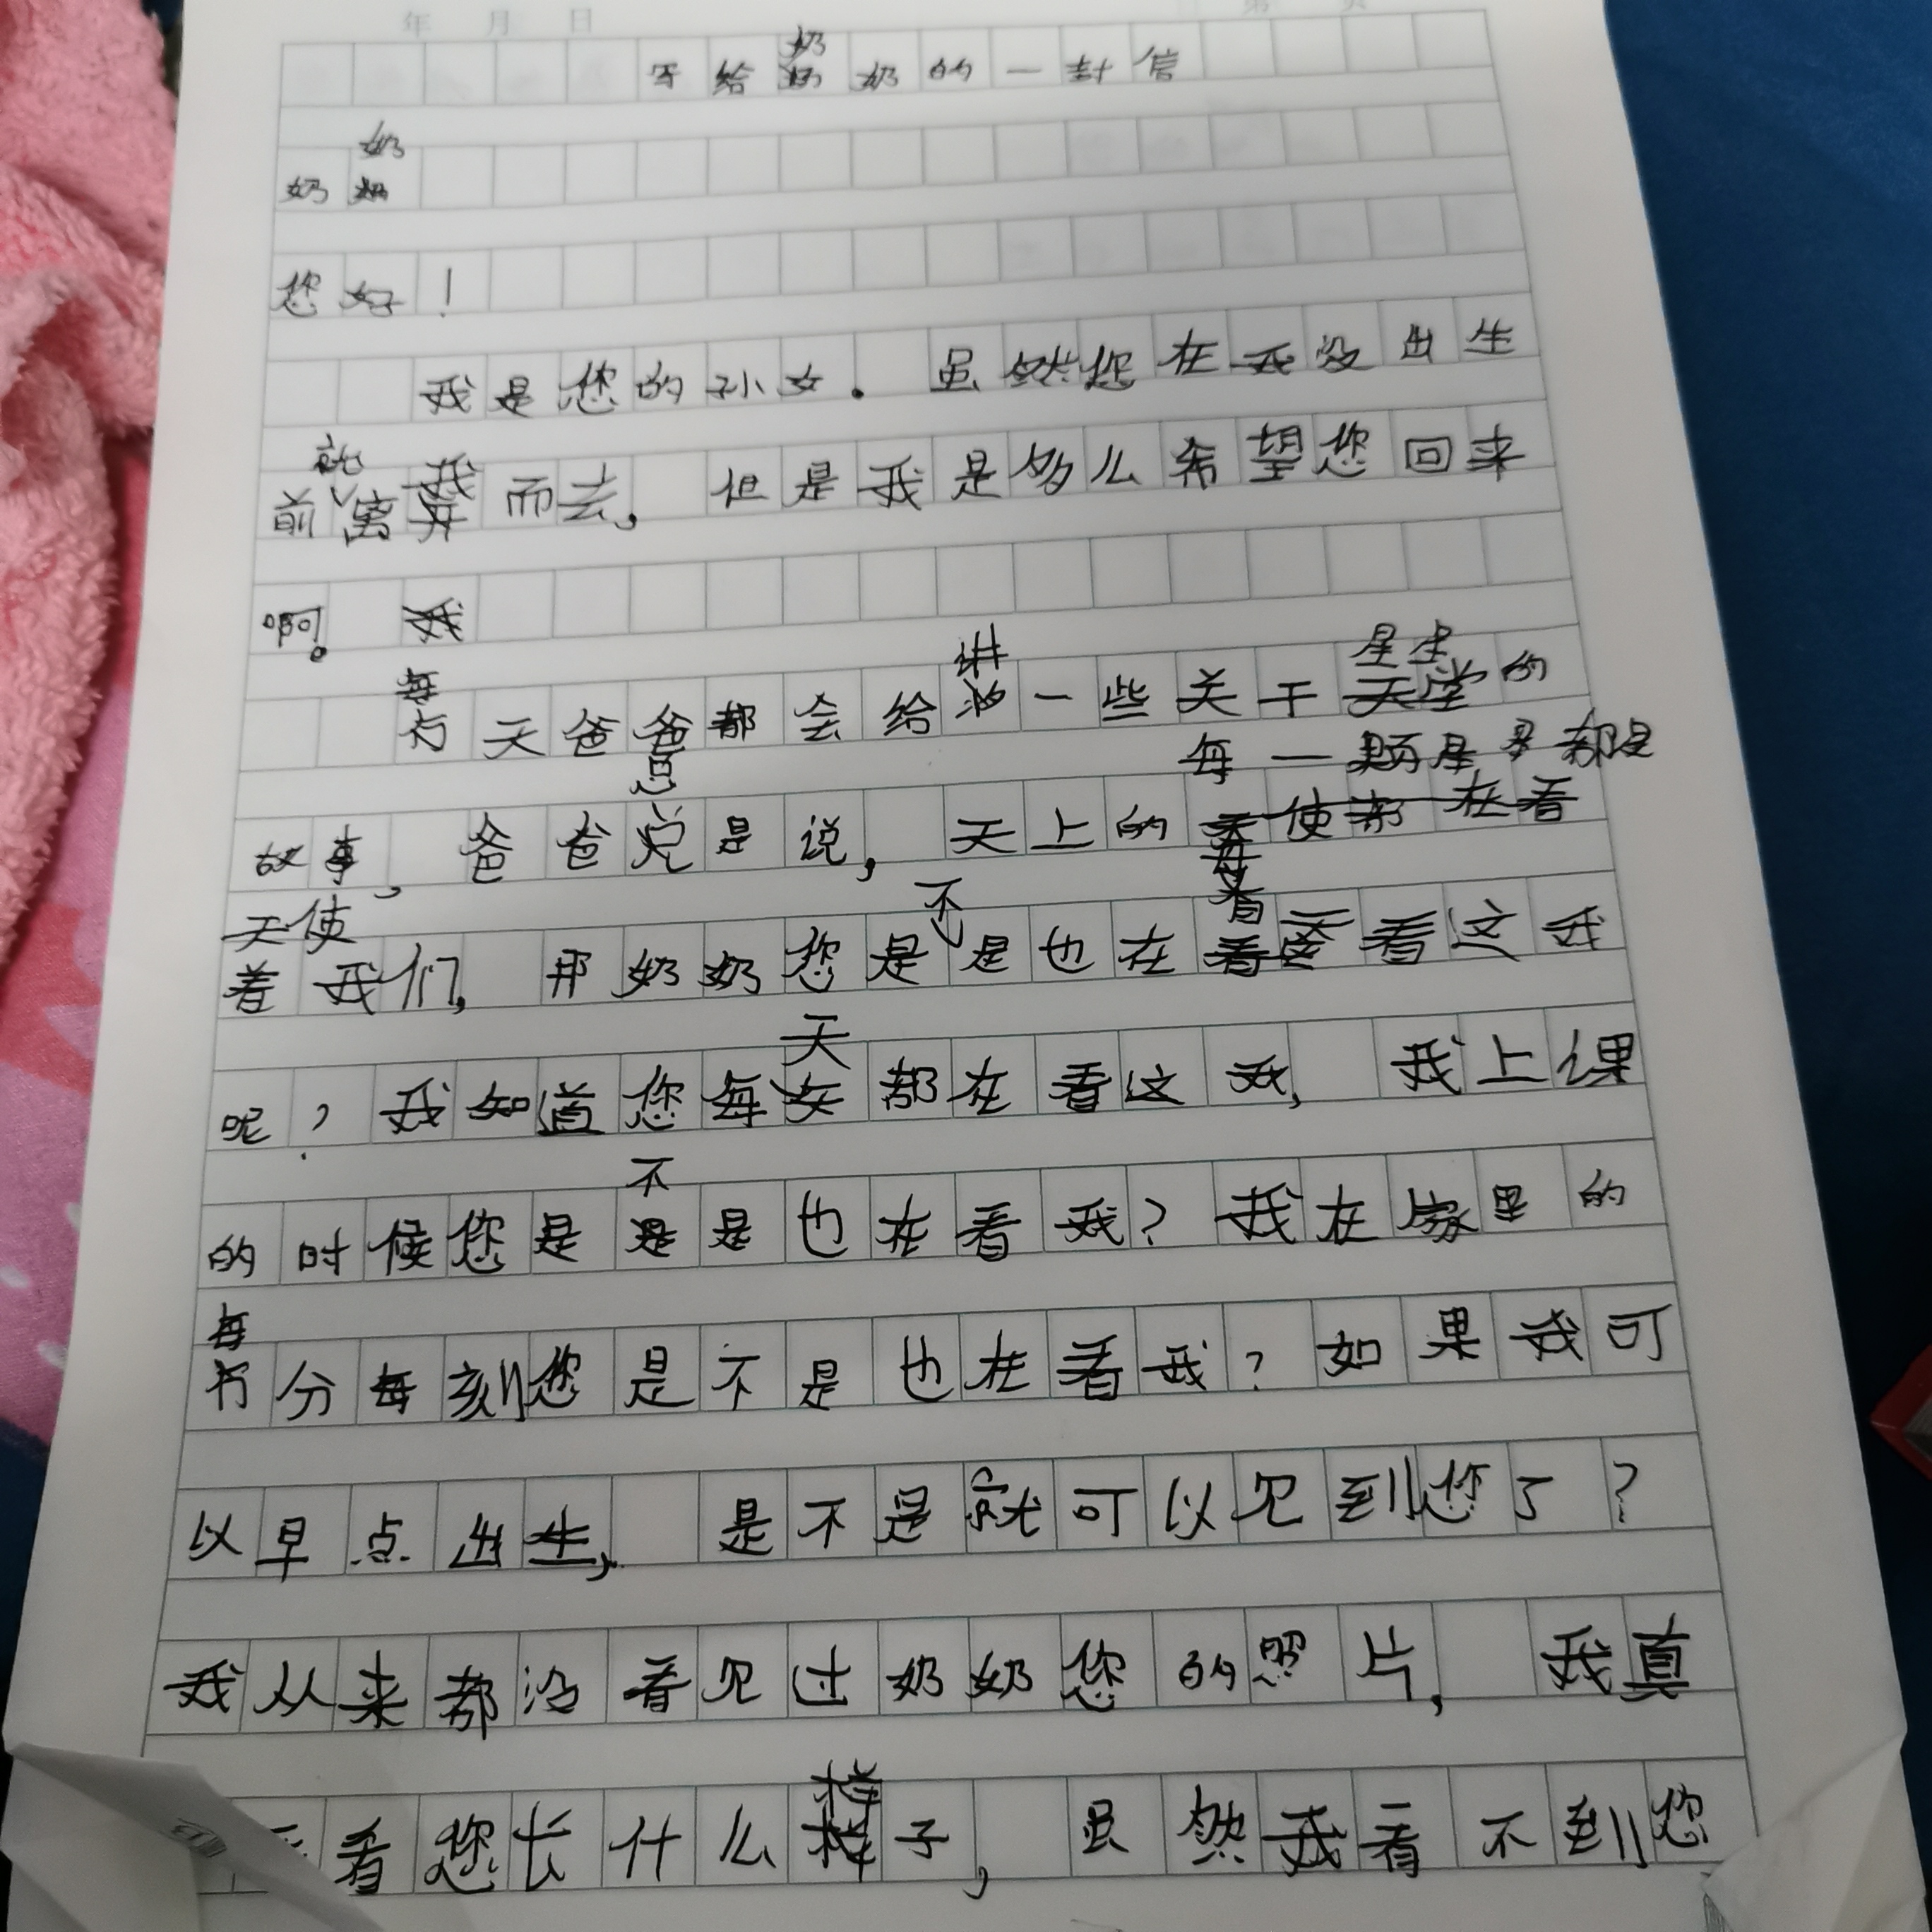 年 月 日
第 页
写给奶奶的一封信
奶奶
您好！
我是您的孙女。虽然您在我没出生
前就离我而去，但是我是多么希望您回来
啊。
每天爸爸都会给讲一些关于星星的
故事，爸爸总是说，天上的每一颗星星都是
天使
看我们，那奶奶您是不是也在看这我
呢？我知道您每天都在看这我，我上课
的时候您是不是也在看我？我在家里的
每分每刻您是不是也在看我？如果我可
以早点出生，是不是就可以见到您了？
我从来都没看见过奶奶您的照片，我真
看您长什么样子，虽然我看不到您